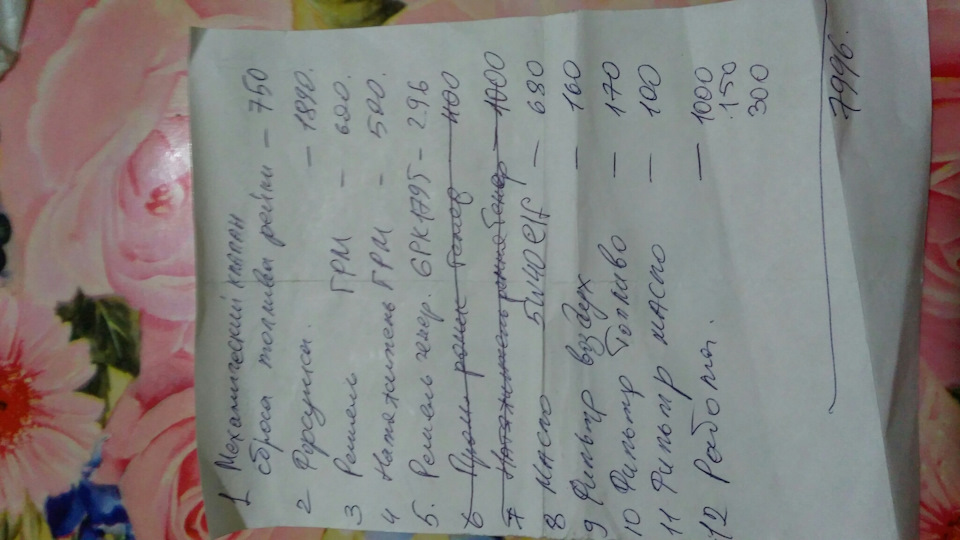 1 Механический клапан
сброса топлива рейки — 750
2 Форсунки. — 1890.
3 Ремень ГРМ — 600.
4 Натяжитель ГРМ — 500.
5. Ремень генер. 6PK1795 - 296
6 Промо ролик Генер — 400
7 Натяжитель ремня Генер — 1000
8 масло 5W40 elf — 680
9 Фильтр воздух — 160
10 Фильтр Топливо — 170
11 Фильтр масло — 100
12 Работы. — 1000
150
300
7996.